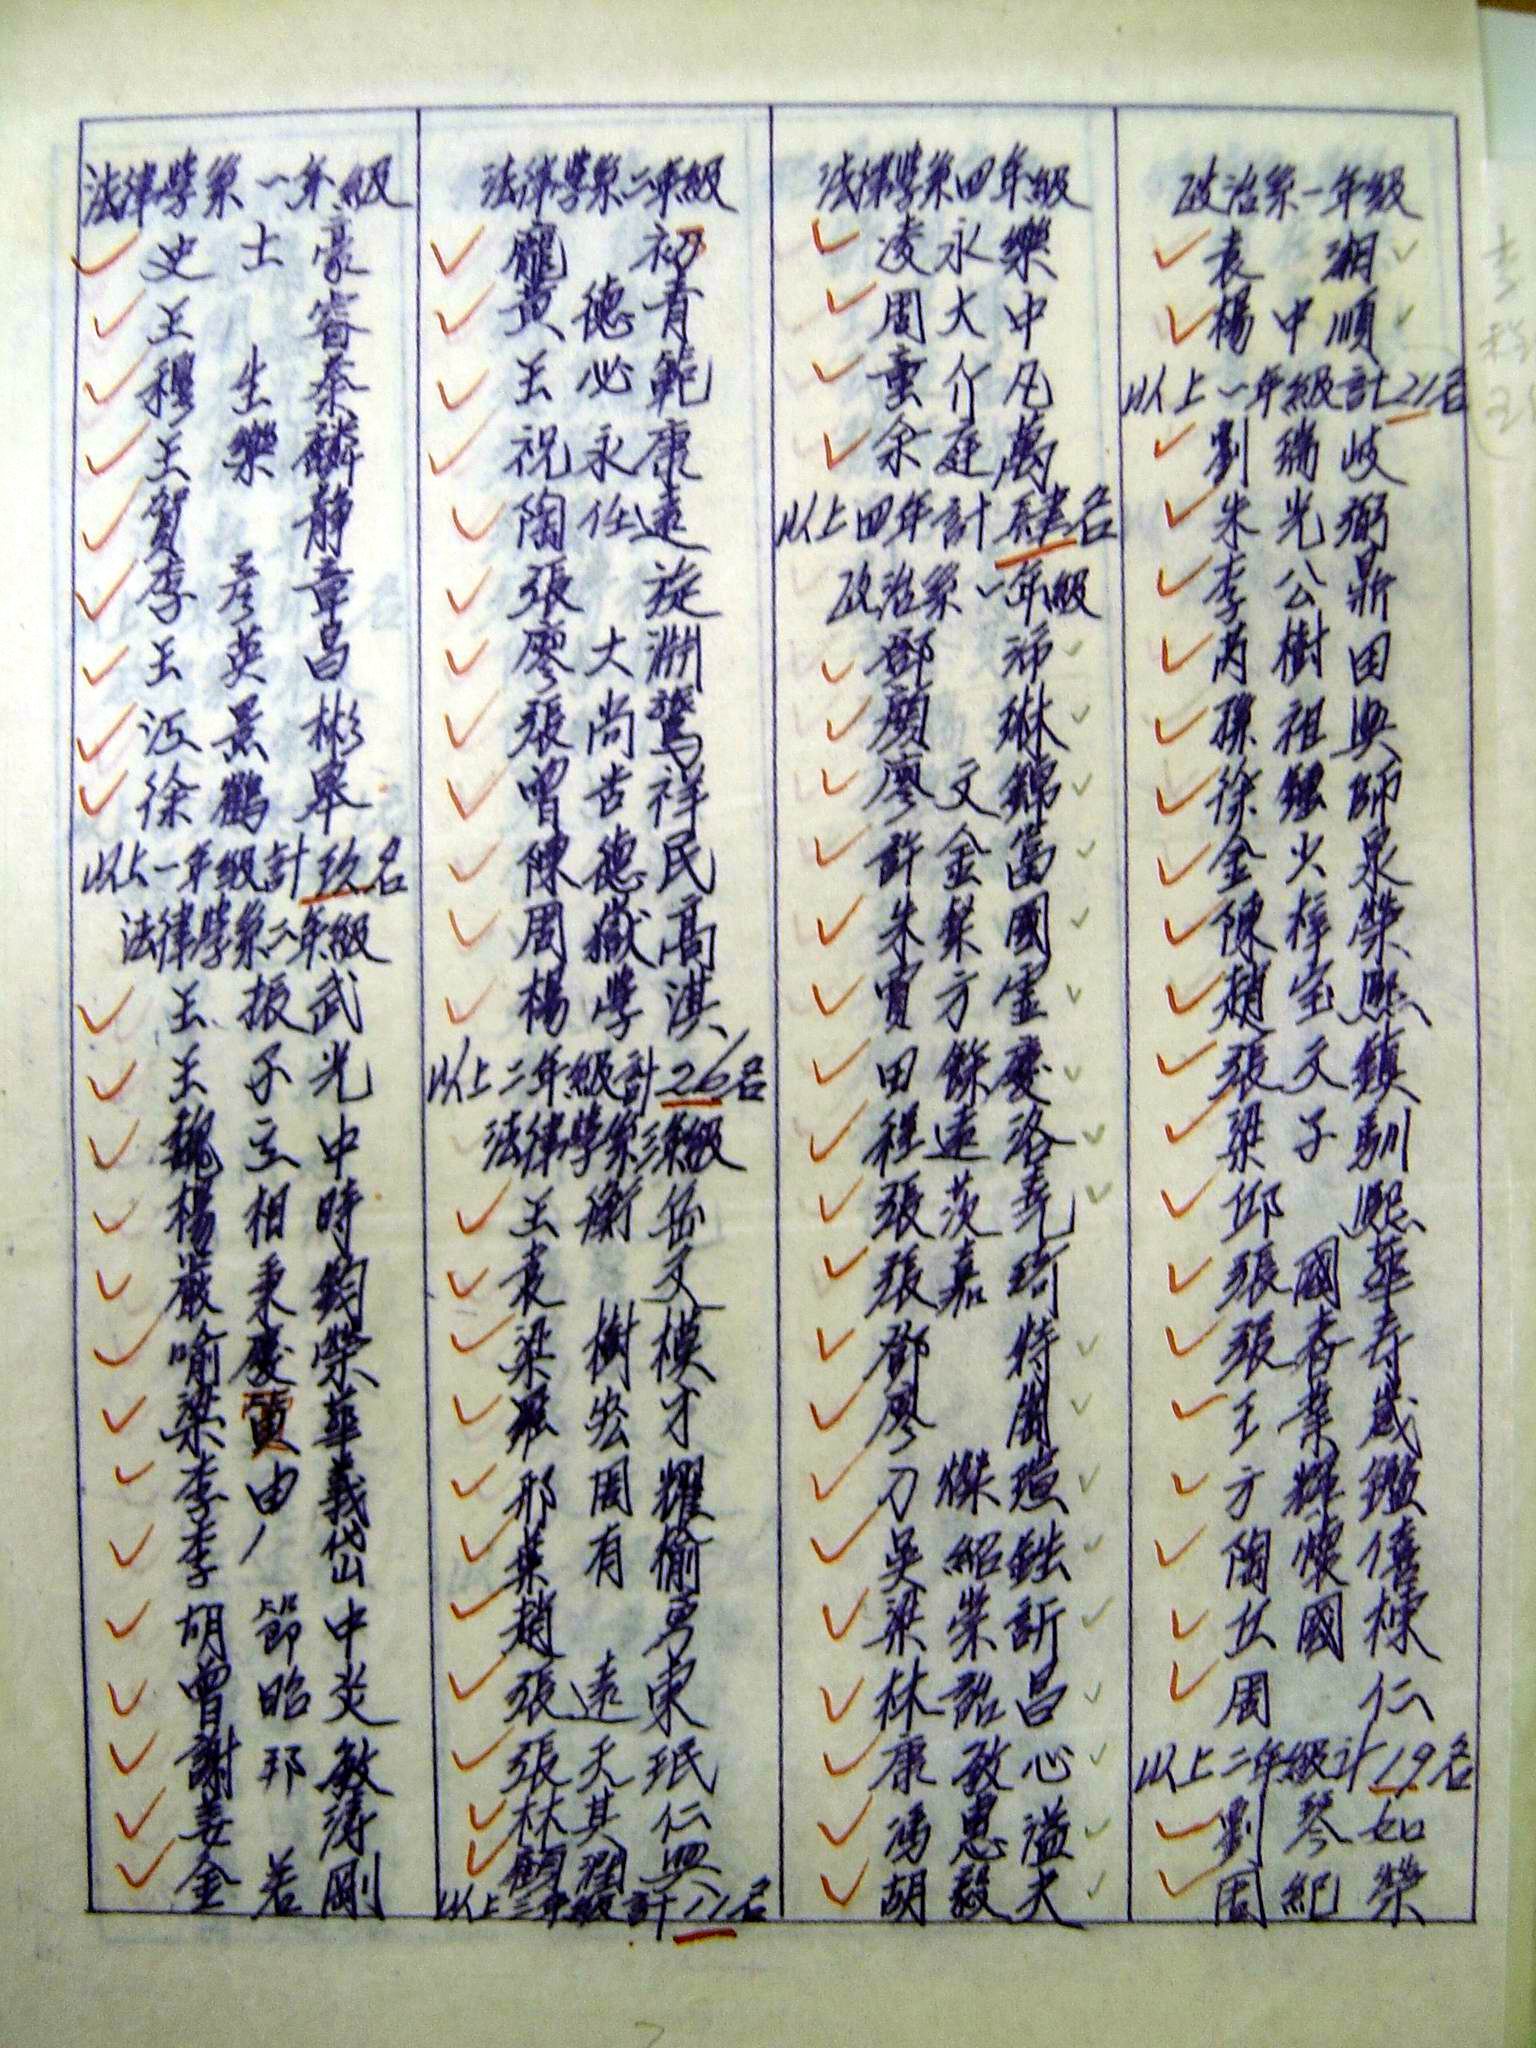 法律學系一年級
史士豪
王睿
穆生泰
王樂麟
賀靜
李彥章
王英昌
江景彬
徐鶴皋
以上一年級計玖名
法律學系二年級
王振武
王子光
魏立中
楊相時
嚴秉鈞
喻慶榮
梁黃華
李由義
李岱
胡節中
曾昭炎
謝邦敏
姜濤
金若剛
法律學系二年級
龐初
黃德青
王必範
祝永康
陶任遠
張旋
廖大淵
張尚鷟
曾世祥
陳德民
周嶽高
楊學淇
以上二年級計26名
法律學系三年級
王衡岳
袁文
梁樹模
羅宏才
邢國耀
葉有愉
趙勇
張遠東
張天珉
林其仁
顧潤興
以上三年級計11名
法律學系四年級
凌永樂
周大中
童介凡
余庭萬
以上四年計肆名
政治系一年級
鄧沛
顏琳
廖文錦
許金富
朱棻國
賈方雲
田餘慶
程遠洛
張茨堯
張嘉琦
鄧特
廖開
刀燦瑄
吳紹銼
梁榮訢
林詒昌
康教心
馮惠溢
胡毅夫
政治系一年級
袁湘
楊中順
以上一年級計21名
劉瑞岐
朱光弼
李公鼎
芮樹田
孫祖奐
徐鏗師
金火泉
陳梓榮
趙宝熙
張文鎮
梁子馴
邱熙
張國華
張香壽
王業崴
方輝鑑
陶懷僖
丘國棟
周仁
以上二年級計19名
劉琴如
周紀榮